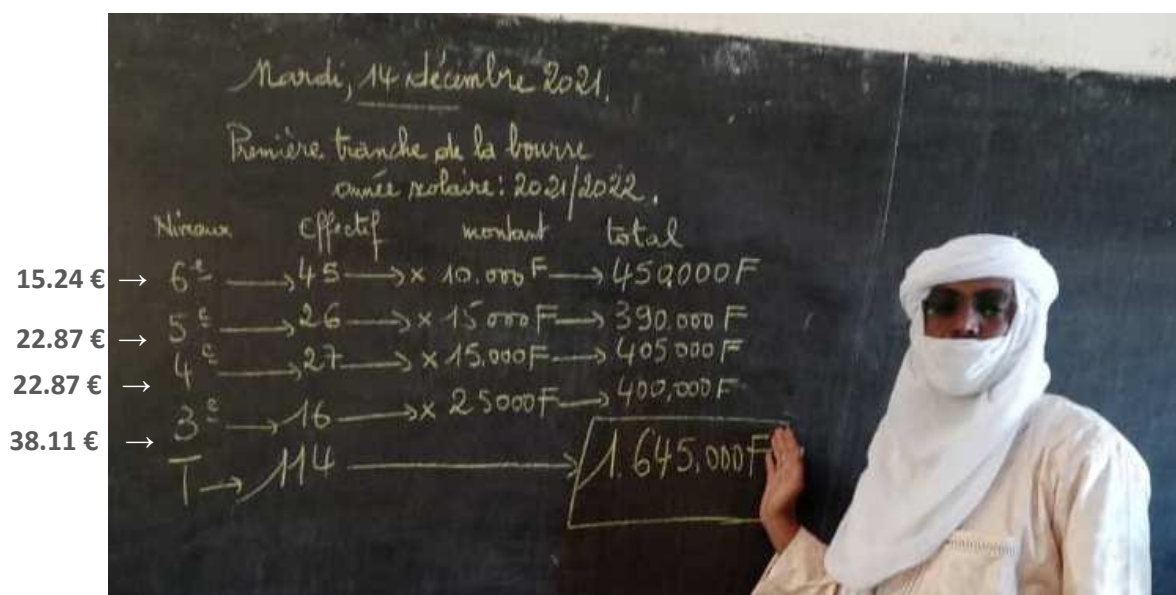 Mardi, 14 décembre 2021.
Première tranche de la bourse
année scolaire: 2021/2022.
Niveaux effectif montant total
15.24 € → 6e → 45 → x 10.000 F → 450.000 F
22.87 € → 5e → 26 → x 15000 F → 390.000 F
22.87 € → 4e → 27 → x 15.000F → 405000 F
38.11 € → 3e → 16 → x 25000F → 400,000 F
T → 114 → 1.645.000F